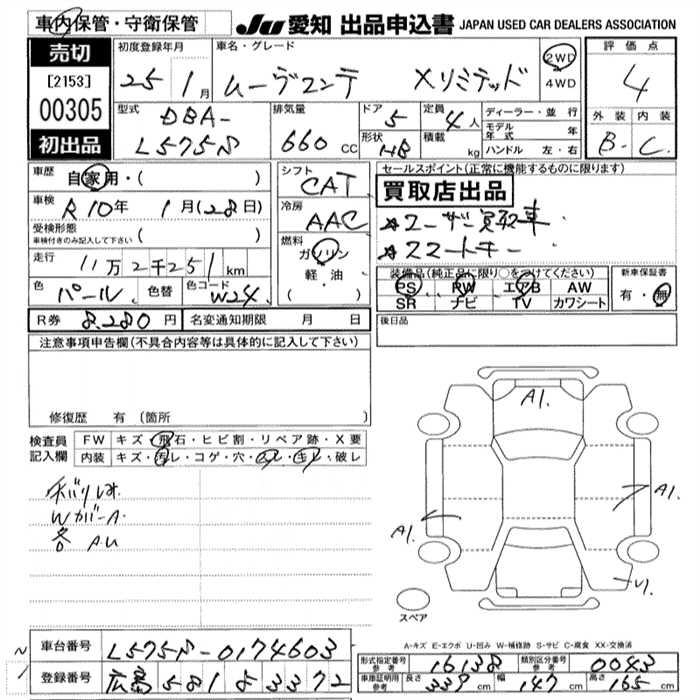 車内保管・守衛保管
JU 愛知 出品申込書 JAPAN USED CAR DEALERS ASSOCIATION
売切
[2153]
00305
初出品
初度登録年月
25 1月
車名・グレード
ムーヴコンテ Xリミテッド
2WD
4WD
評価点
4
外装 内装
B- C
型式
DBA-
L575S
排気量
660 cc
ドア 5
形状 HB
定員 4人
積載 kg
ディーラー・並行
モデル年式 年
ハンドル 左・右
車歴 自家用・( )
車検 R10年 1月(28日)
受検形態
車検付きのみ記入して下さい ( )
走行 11万2千251km
色 パール 色替 色コード W24
シフト
CAT
冷房
AAC
燃料
ガソリン
軽・油
( )
セールスポイント(正常に機能するものに限ります)
買取店出品
☆ユーザー買取車
☆スマートキー
装備品(純正品に限り○をつけてください)
PS PW エアB AW
SR ナビ TV カワシート
新車保証書
有・無
R券 8,280円 名変通知期限 月 日
後日品
注意事項申告欄(不具合内容等は具体的に記入して下さい)
修復歴 有(箇所
検査員
記入欄
FW キズ・飛石・ヒビ割・リペア跡・X要
内装 キズ・汚レ・コゲ・穴・スレ・キレ・破レ
WカバーA
各 A.U
A1.
A1.
A1.
U1.
スペア
A-キズ E-エクボ U-凹み W-補修跡 S-サビ C-腐食 XX-交換済
車台番号 L575S-0174603
登録番号 広島 581 る 3372
型式指定番号 参考 16138 類別区分番号 参考 0043
車庫証明用 参考 長さ 339cm 幅 147cm 高さ 165cm